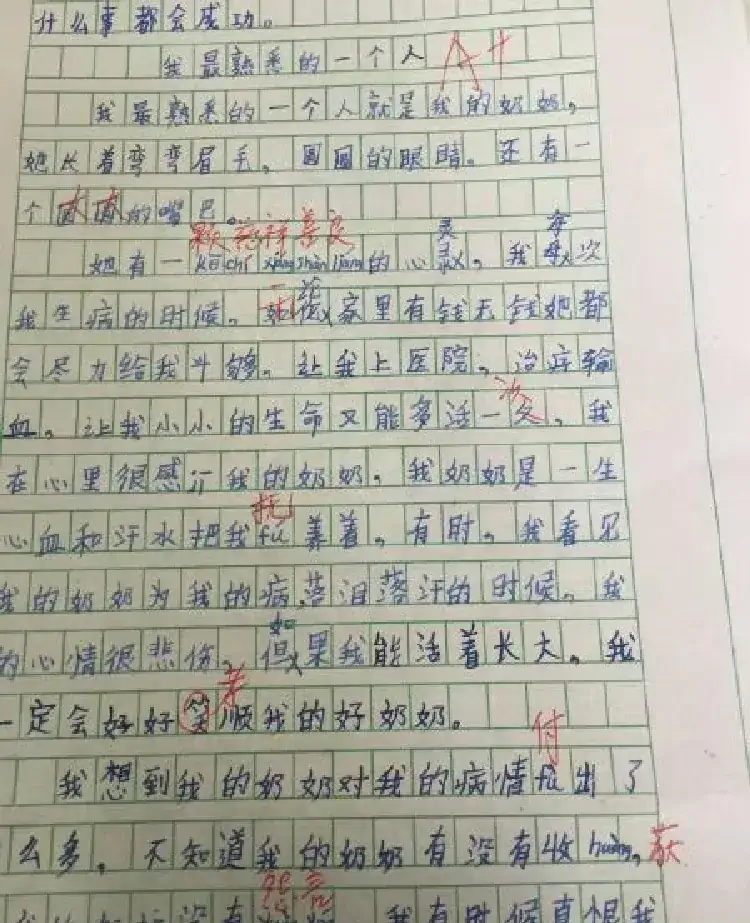 什么事都会成功。
我最熟悉的一个人 A+
我最熟悉的一个人就是我的奶奶,
她长着弯弯眉毛,圆圆的眼睛。还有一
个扁扁的嘴巴。
颗慈祥善良 灵 每
她有一kē chí xiáng shàn liáng的心,我次
我生病的时候。家里有钱无钱她都
会尽力给我斗够。让我上医院,治疗输
血。让我小小的生命又能多活一次,我
在心里很感订我的奶奶。我奶奶是一生
抚
心血和汗水把我fǔ养着,有时。我看见
我的奶奶为我的病落泪落汗的时候。我
如
的心情很悲伤,但果我能活着长大。我
孝
一定会好好笑顺我的好奶奶。
付
我想到我的奶奶对我的病情fù出了
么多。不知道我的奶奶有没有收huò,获
我有时候真恨我